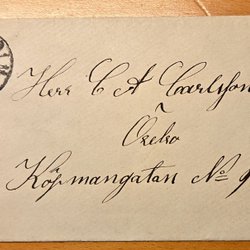 Herr C A Carlson
Oxelo
Köpmangatan No 9